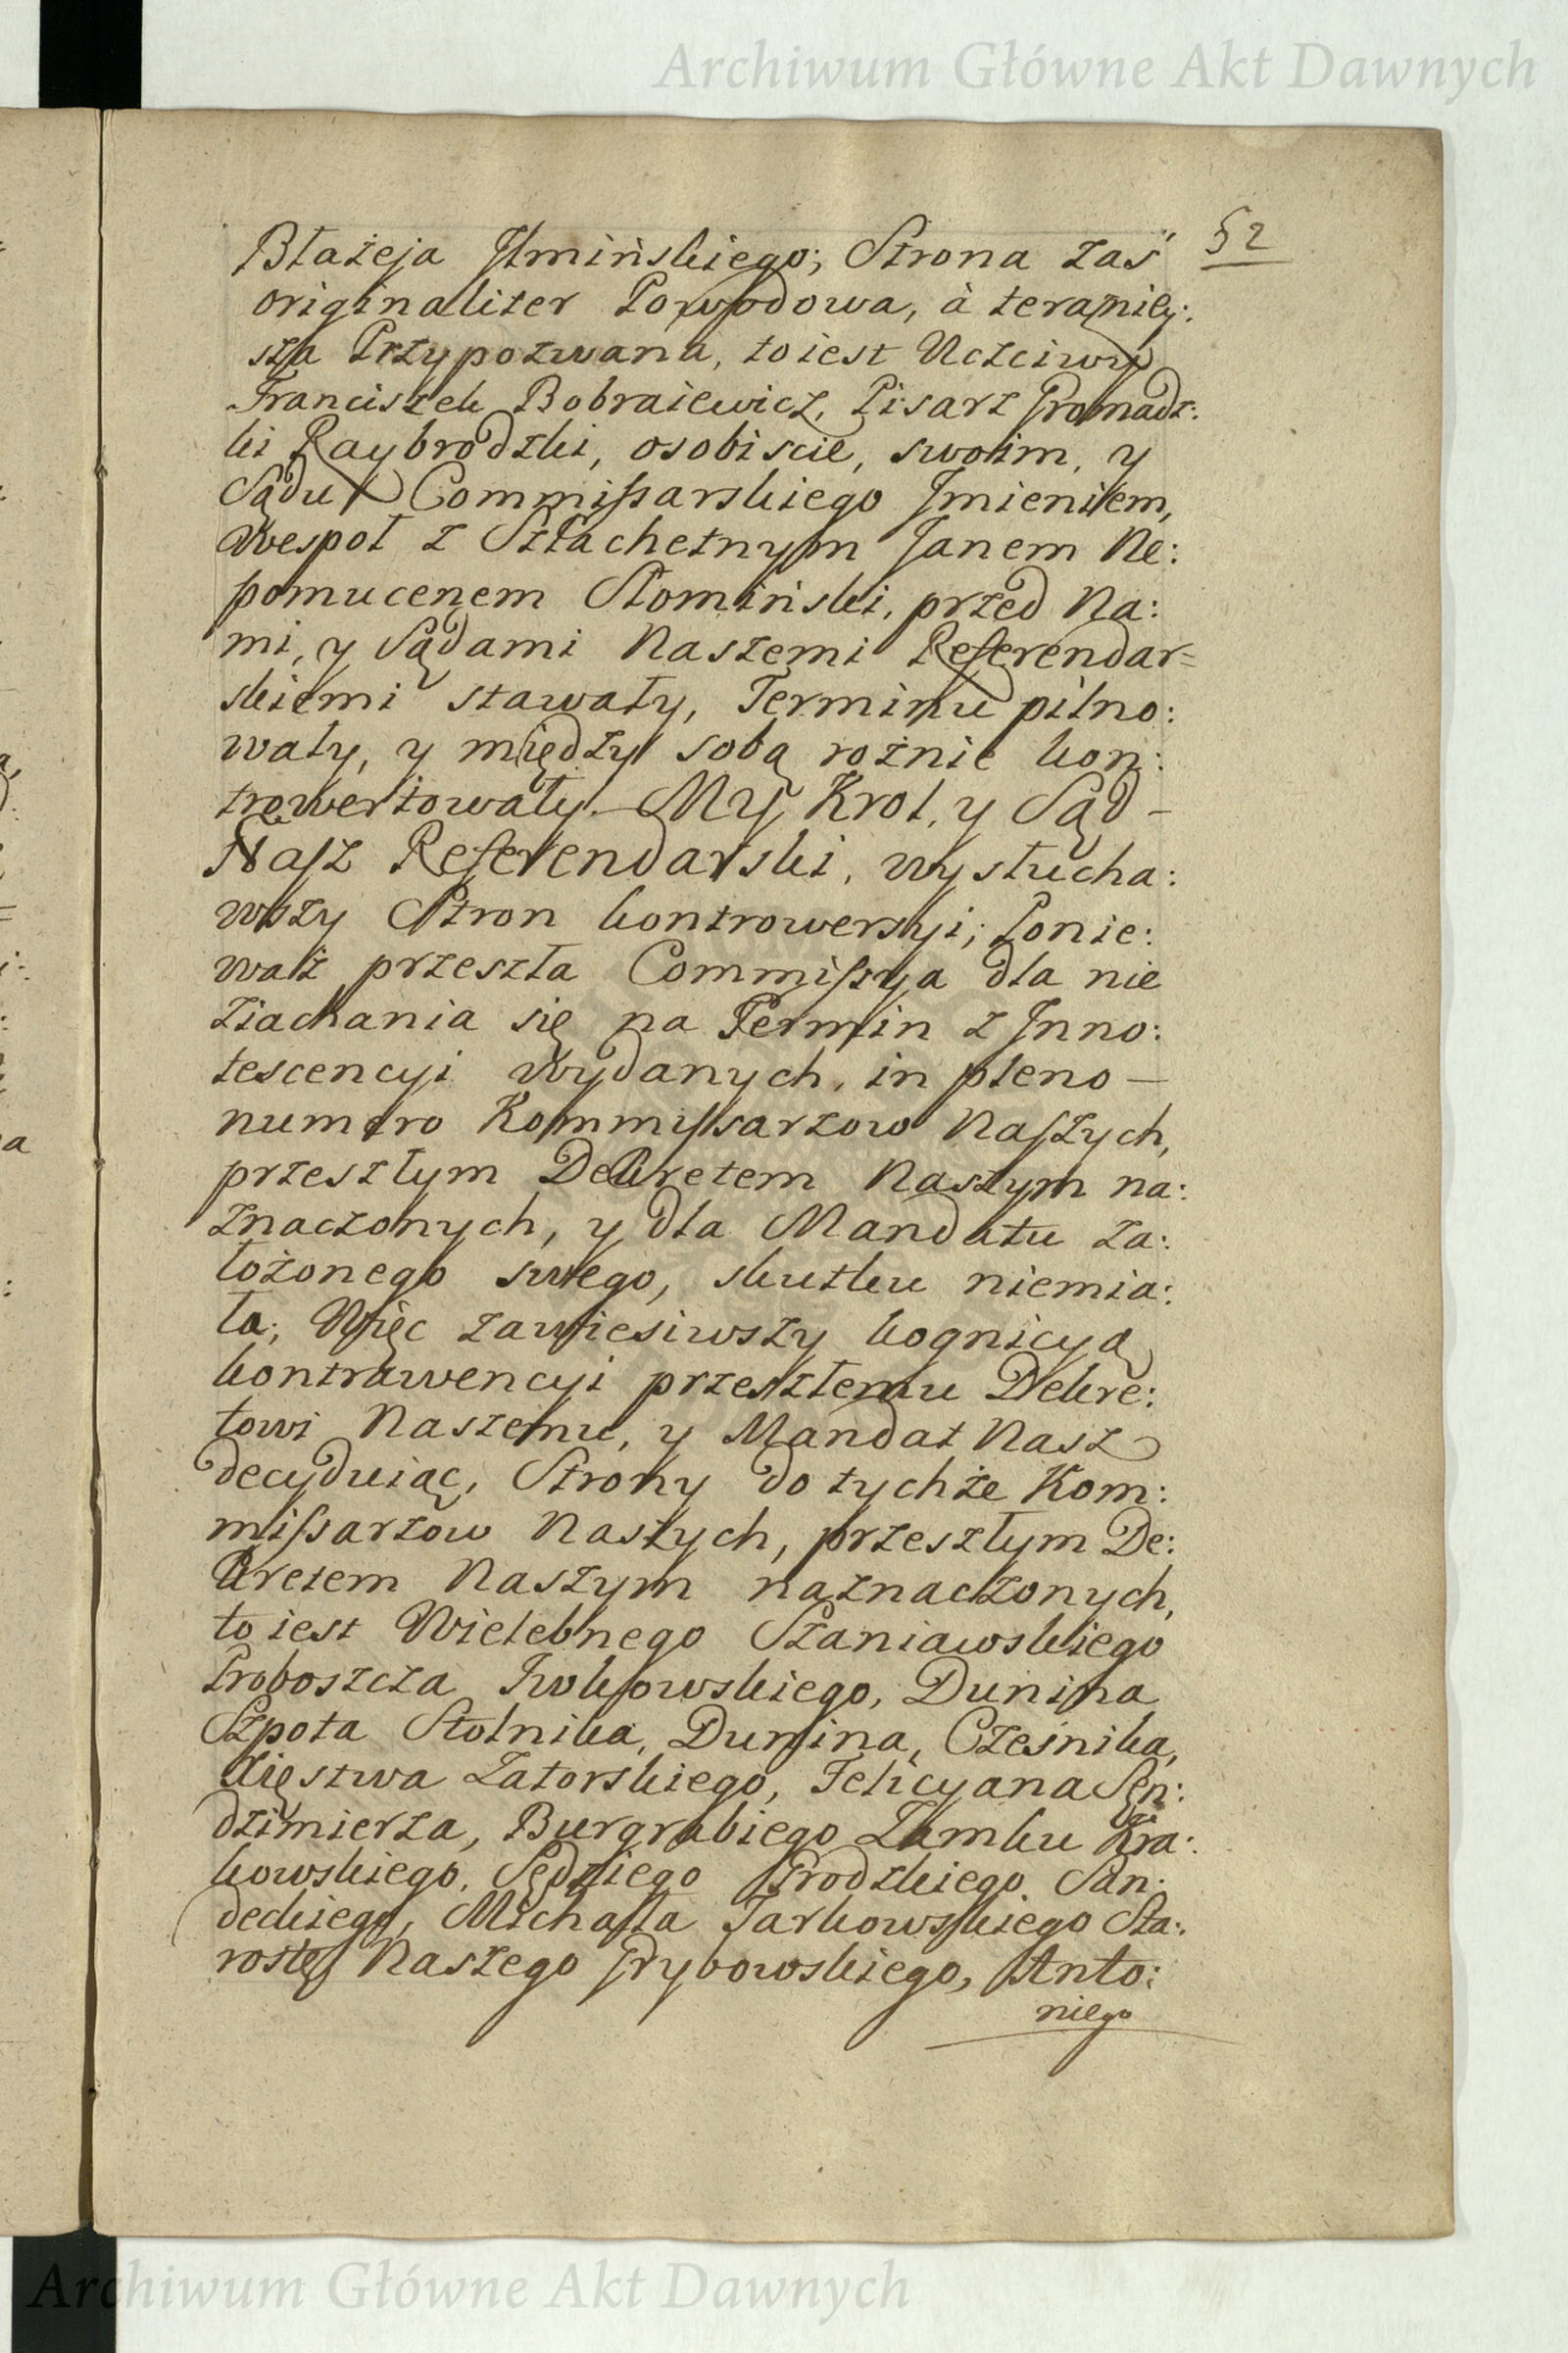 Archiwum Główne Akt Dawnych
52
Błażeja Ilmińskiego; Strona zaś
originaliter Powodowa, à teraźniey:
sza Przypozwana, to iest Uczciwy
Franciszek Bobraiewicz, Pisarz Gromadz:
ki Raybrodzki, osobiscie, swoim, y
Sądu Commissarskiego Jmieniem,
wespoł z Szlachetnym Janem Ne:
pomucenem Słomiński, przed Na:
mi, y Sądami Naszemi Referendar=
skiemi stawały, Terminu pilno:
wały, y między sobą rożnie kon:
trowertowały. — My Krol, y Sąd —
Nasz Referendarski, wysłucha:
wszy Stron kontrowersyi; Ponie:
waż przeszła Commissya dla nie
ziachania się na Termin z Inno:
tescencyi wydanych, in pleno —
numero Kommissarzow Naszych,
przeszłym Dekretem Naszym na:
znaczonych, y dla Mandatu za:
łożonego swego, skutku niemia:
ła; Więc zawiesiwszy kognicyą
kontrawencyi przeszłemu Dekre:
towi Naszemu, y Mandat Nasz
decyduiąc, Strony do tychże Kom:
missarzow Naszych, przeszłym De:
kretem Naszym naznaczonych,
to iest Wielebnego Szaniawskiego
Proboszcza Iwkowskiego, Dunina
Szpota Stolnika, Dunina, Cześnika,
Xięstwa Zatorskiego, Felicyana Sęn:
dzimierza, Burgrabiego Zamku Kra:
kowskiego, Sędziego Grodzkiego San:
deckiego, Michała Jarkowskiego Sta:
rostę Naszego Grybowskiego, Anto:
niego
Archiwum Główne Akt Dawnych